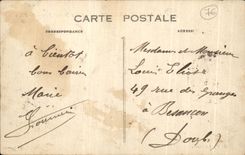 CARTE POSTALE
CORRESPONDANCE
ADRESSE
à bientôt
bons baisers
Marie
Mesdame et Monsieur
Louis
49 rue des Granges
à
Besançon
(Doubs)